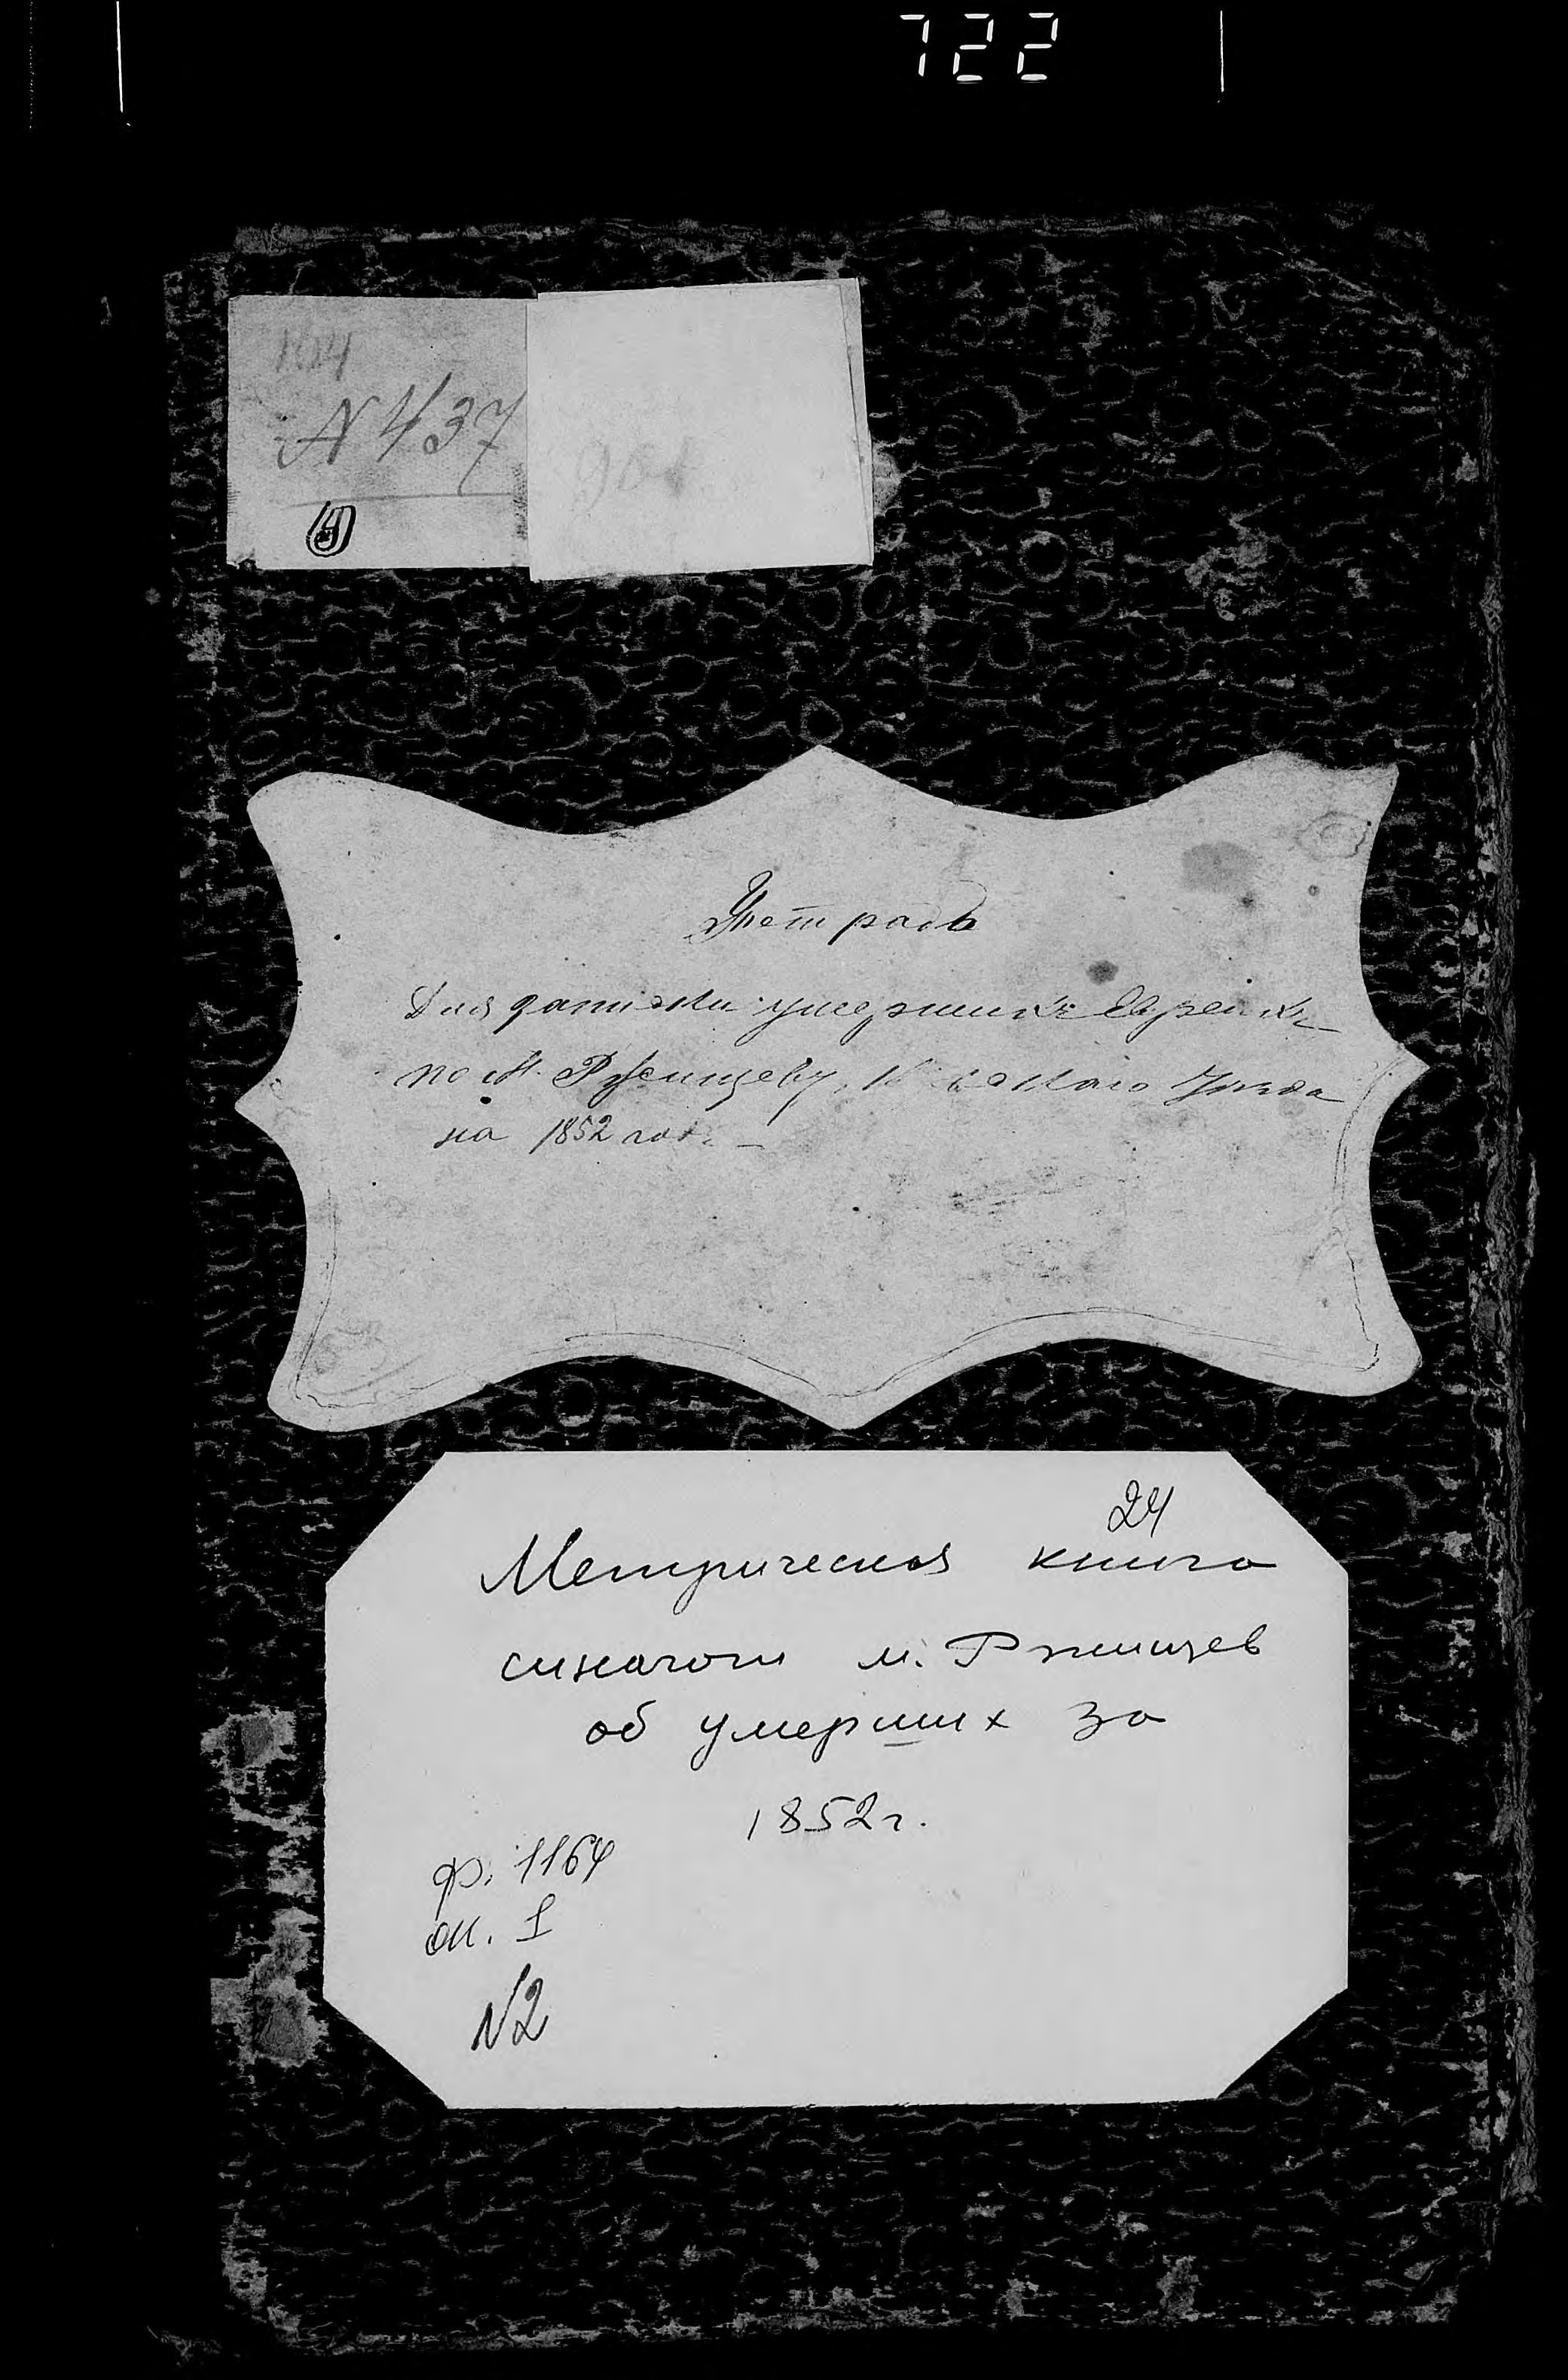 722
N 437
Тетрадь
Для записки умершихъ Евреевъ
по М. Ржищеву, Уѣзда
на 1852 годъ
24
Метрическая книга
синагоги м. Ржищев
об умерших за
1852 г.
ф. 1164
оп. 1
N2